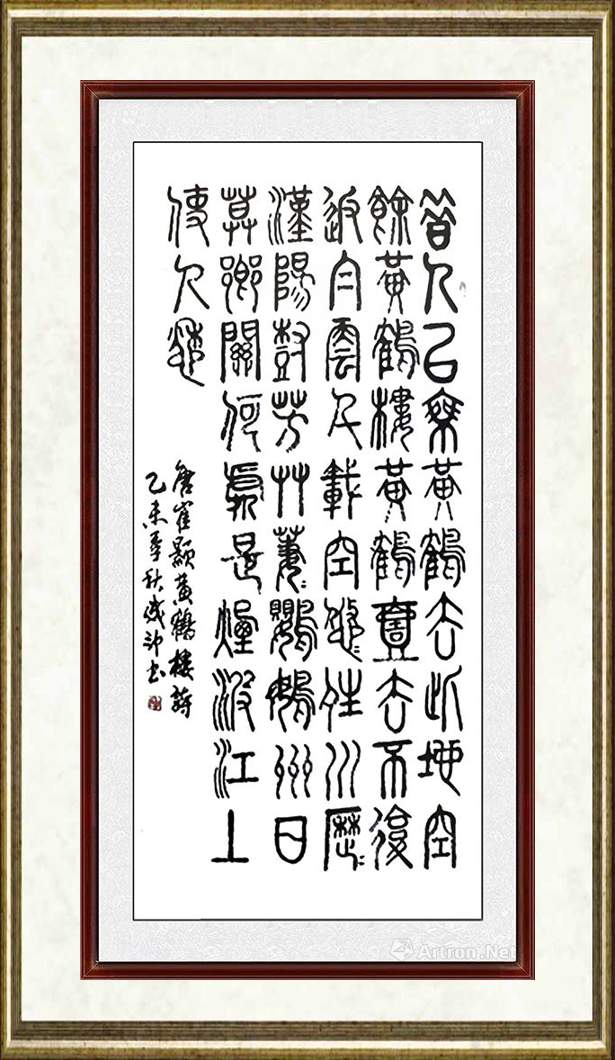 昔人已乘黃鶴去此地空
餘黃鶴樓黃鶴壹去不復
返白雲千載空悠〻晴川歷〻
漢陽樹芳艸萋〻鸚鵡洲日
暮鄉關何處是煙波江上
使人愁
唐崔顥黃鶴樓詩
乙未 秋 書
Artron.Net